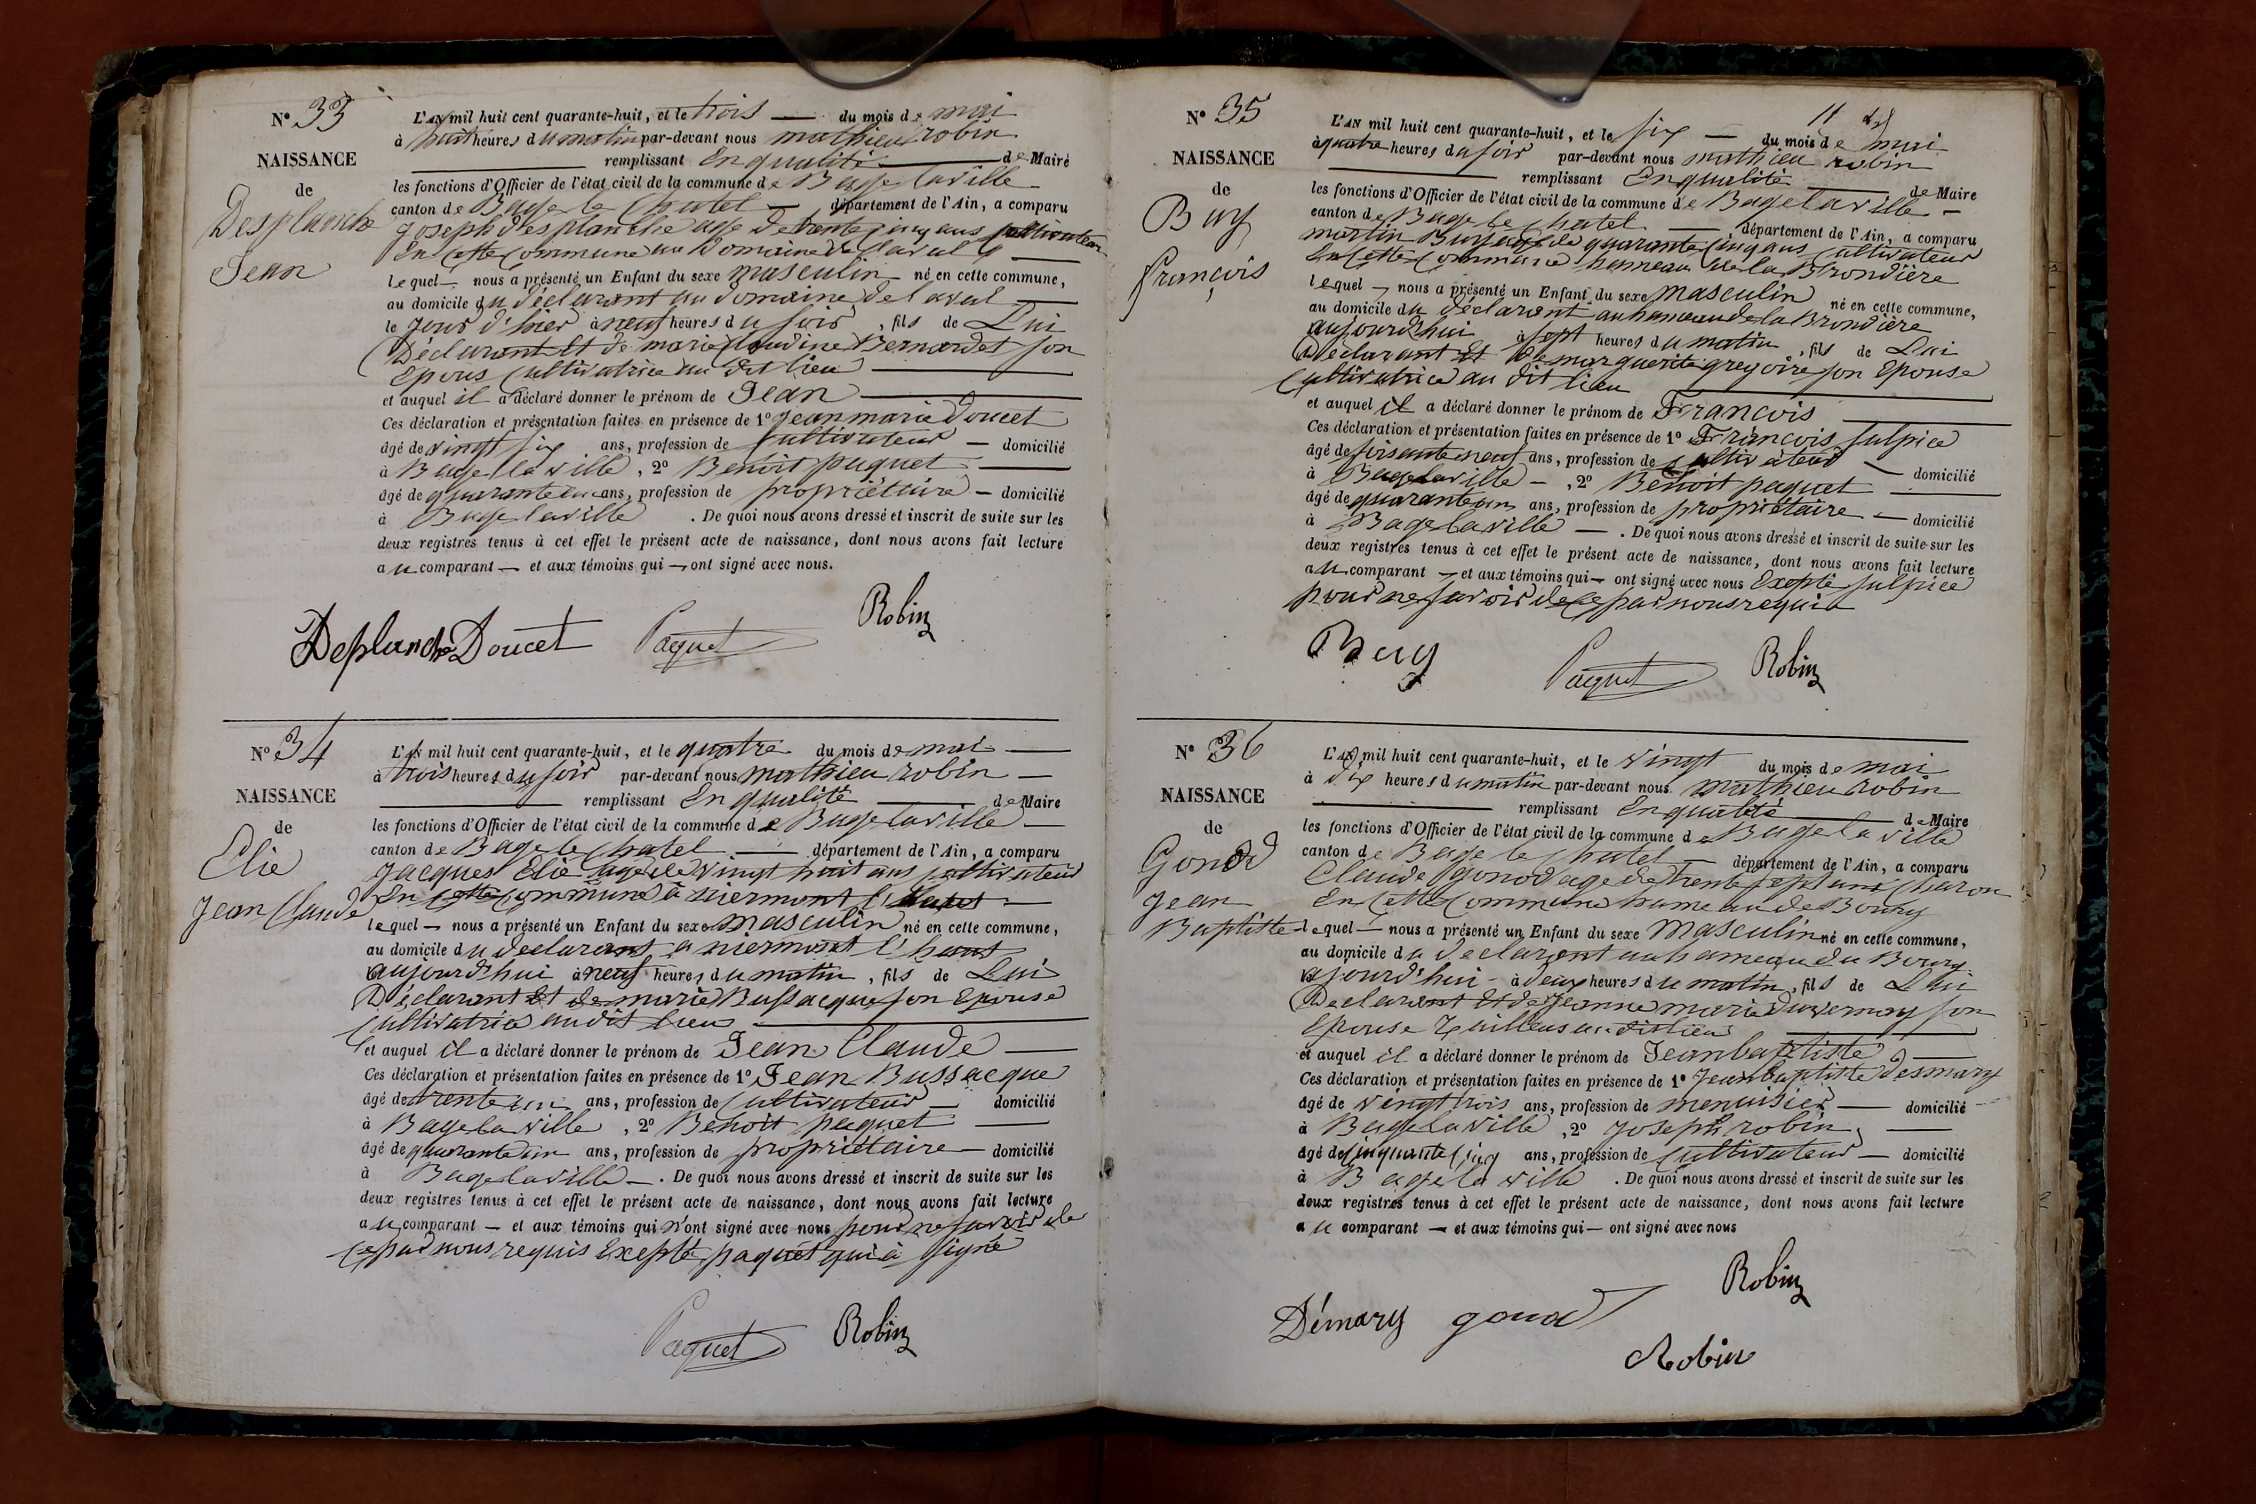 N° 33
NAISSANCE
de
Desplanche
Jean
L'AN mil huit cent quarante-huit, et le trois — du mois de mai
à huit heures du matin par-devant nous mathieu robin
remplissant En qualité de Maire
les fonctions d'Officier de l'état civil de la commune de Bage la ville
canton de Bage le Chatel — département de l'Ain, a comparu
joseph desplanche age de trente cinq ans Cultivateur
En Cette Commune au Domaine de Laval
lequel — nous a présenté un Enfant du sexe masculin né en cette commune,
au domicile du déclarant au domaine de laval
le jour d'hier à neuf heures du soir, fils de Lui
Déclarant Et de marie Claudine Bernardet son
Epous Cultivatrice au dit lieu
et auquel il a déclaré donner le prénom de Jean
Ces déclaration et présentation faites en présence de 1° jean marie Doucet
âgé de vingt six ans, profession de Cultivateur — domicilié
à Bage la ville, 2° Benoit paquet
âgé de quarante un ans, profession de propriétaire — domicilié
à Bage la ville. De quoi nous avons dressé et inscrit de suite sur les
deux registres tenus à cet effet le présent acte de naissance, dont nous avons fait lecture
au comparant — et aux témoins qui — ont signé avec nous.
Deplanche Doucet Paquet Robin
N° 34
NAISSANCE
de
Elie
Jean Claude
L'AN mil huit cent quarante-huit, et le quatre du mois de mai —
à trois heures du soir par-devant nous mathieu robin —
remplissant En qualité de Maire
les fonctions d'Officier de l'état civil de la commune de Bage la ville —
canton de Bage le Chatel — département de l'Ain, a comparu
Jacques Elie age de vingt huit ans Cultivateur
En Cette Commune à niermont
lequel — nous a présenté un Enfant du sexe masculin né en cette commune,
au domicile du declarant a niermont l'haut
aujourd'hui à neuf heures du matin, fils de Lui
Déclarant Et de marie Bussacque son Epouse
Cultivatrice audit lieu
et auquel il a déclaré donner le prénom de Jean Claude —
Ces déclaration et présentation faites en présence de 1° Jean Bussacque
âgé de trente un ans, profession de Cultivateur — domicilié
à Bage la ville, 2° Benoit paquet —
âgé de quarante un ans, profession de propriétaire — domicilié
à Bage la ville —. De quoi nous avons dressé et inscrit de suite sur les
deux registres tenus à cet effet le présent acte de naissance, dont nous avons fait lecture
au comparant — et aux témoins qui n'ont signé avec nous pour ne savoir de
Ce par nous requis Excepté paquet qui à signé
Paquet Robin
11
N° 35
NAISSANCE
de
Buy
françois
L'AN mil huit cent quarante-huit, et le six — du mois de mai
à quatre heures du soir par-devant nous mathieu robin
remplissant En qualité de Maire
les fonctions d'Officier de l'état civil de la commune de Bage la ville —
canton de Bage le Chatel — département de l'Ain, a comparu
martin Buy age de quarante cinq ans Cultivateur
En Cette Commune hameau de la Brondière
lequel — nous a présenté un Enfant du sexe masculin né en cette commune,
au domicile du déclarant au hameau de la Brondière
aujourd'hui à sept heures du matin, fils de Lui
Déclarant Et de marguerite gregoire son Epouse
Cultivatrice au dit lieu
et auquel il a déclaré donner le prénom de François
Ces déclaration et présentation faites en présence de 1° François sulpice
âgé de soisante neuf ans, profession de Cultivateur — domicilié
à Bage la ville —, 2° Benoit paquet
âgé de quarante un ans, profession de propriétaire — domicilié
à Bage la ville —. De quoi nous avons dressé et inscrit de suite sur les
deux registres tenus à cet effet le présent acte de naissance, dont nous avons fait lecture
au comparant — et aux témoins qui — ont signé avec nous Excepté sulpice
pour ne savoir de Ce par nous requis
Buy Paquet Robin
N° 36
NAISSANCE
de
Gonod
Jean
Baptiste
L'AN mil huit cent quarante-huit, et le vingt du mois de mai
à dix heures du matin par-devant nous mathieu robin
remplissant En qualité de Maire
les fonctions d'Officier de l'état civil de la commune de Bage la ville
canton de Bage le Chatel — département de l'Ain, a comparu
Claude gonod age de trente sept ans Charon
En Cette Commune hameau de Bourg
lequel — nous a présenté un Enfant du sexe Masculin né en cette commune,
au domicile du declarent au hameau du Bourg
ajourd'hui à deux heures du matin, fils de Lui
Declarent Et de Jeanne marie duvernay son
Epouse Tailleus au dit lieu
et auquel il a déclaré donner le prénom de Jean baptiste —
Ces déclaration et présentation faites en présence de 1° Jean baptiste desmary
âgé de vingt trois ans, profession de menuisier — domicilié
à Bage la ville, 2° joseph robin —
âgé de Cinquante Cinq ans, profession de Cultivateur — domicilié
à Bage la ville. De quoi nous avons dressé et inscrit de suite sur les
deux registres tenus à cet effet le présent acte de naissance, dont nous avons fait lecture
au comparant — et aux témoins qui — ont signé avec nous
Robin
Démary gonod
Robin